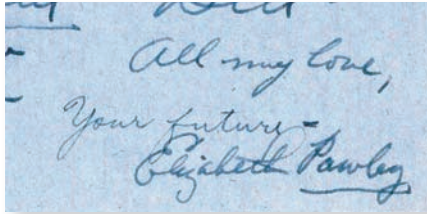 Bill
All my love,
Your future -
Elizabeth Pawley